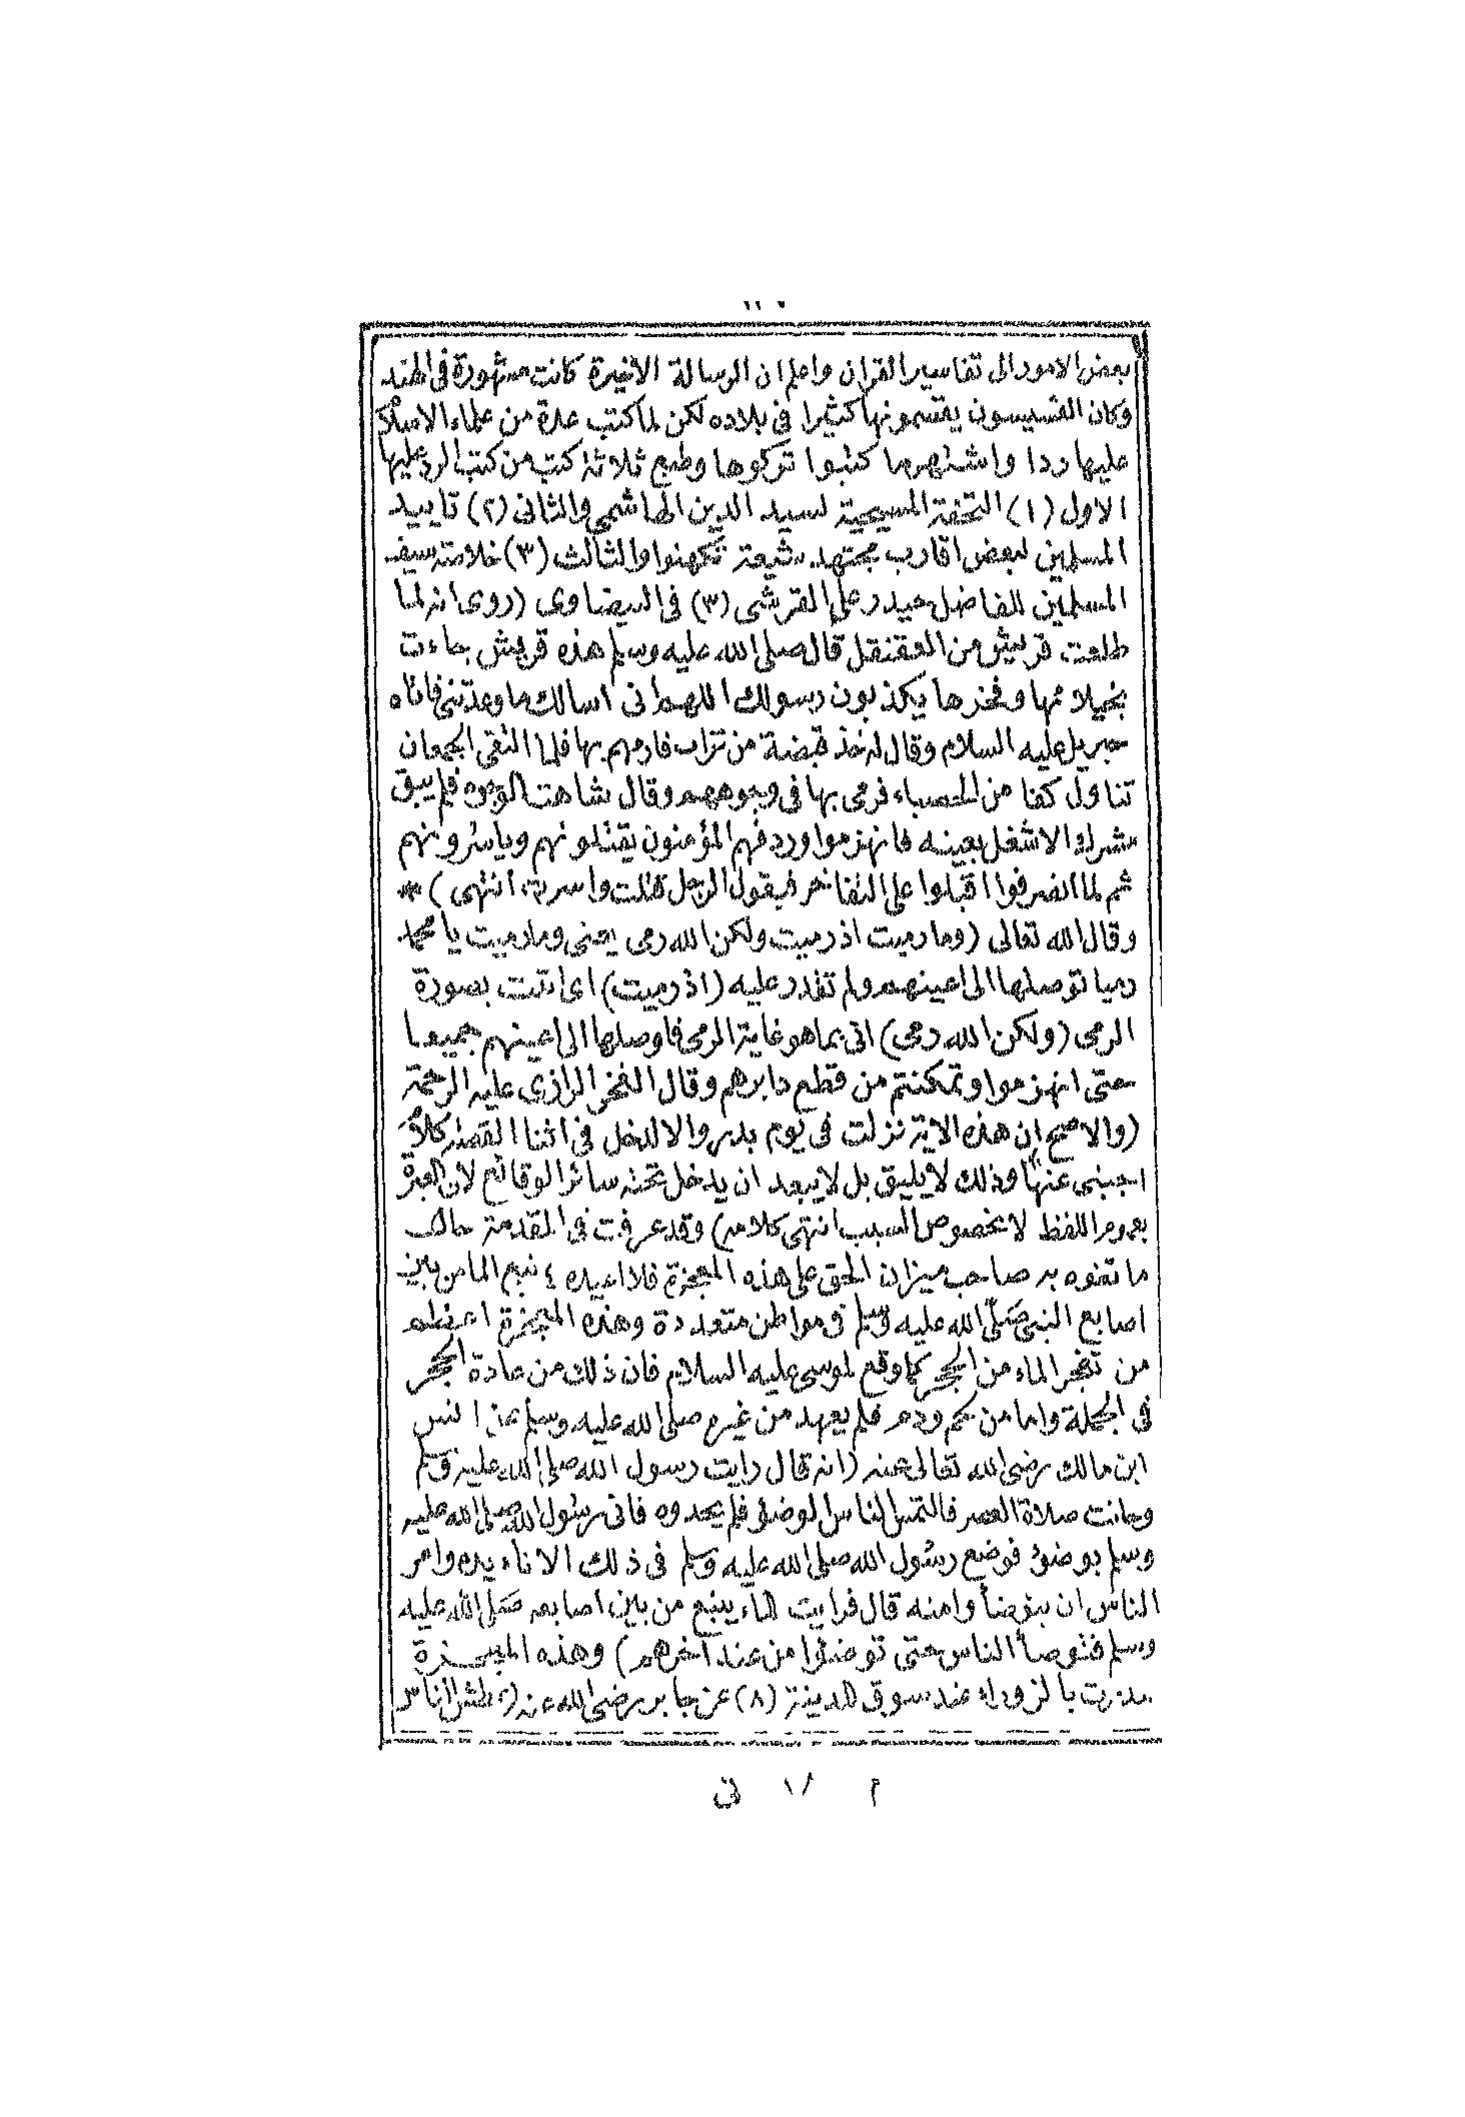 بعض الامور الى تفاسير القران واعلم ان الرسالة الاخيرة كانت مشهورة فى الهند
وكان القسيسون يقسمونها كثيرا فى بلاده لكن لما كتب عدة من علماء الاسلام
عليها ردا واشتهر ما كتبوا تركوها وطبع ثلاثة كتب من كتب الرد عليها
الاول (١) التحفة المسيحية لسيد الدين الهاشمى والثانى (٢) تاييد
المسلمين لبعض اقارب مجتهد شيعة لكهنوا والثالث (٣) خلاصة سيف
المسلمين للفاضل حيدر على القرشى (٣) فى البيضاوى (روى انه لما
طلعت قريش من العقنقل قال صلى الله عليه وسلم هذه قريش جاءت
بخيلائها وفخرها يكذبون رسولك اللهم انى اسالك ما وعدتنى فاتاه
جبريل عليه السلام وقال له خذ قبضة من تراب فارمهم بها فلما التقى الجمعان
تناول كفا من الحصباء فرمى بها فى وجوههم وقال شاهت الوجوه فلم يبق
مشرك الا شغل بعينه فانهزموا وردفهم المؤمنون يقتلونهم وياسرونهم
ثم لما انصرفوا اقبلوا على التفاخر فيقول الرجل قتلت واسرت انتهى) *
وقال الله تعالى (وما رميت اذ رميت ولكن الله رمى يعنى وما رميت يا محمد
رميا توصلها الى اعينهم ولم تقدر عليه (اذ رميت) اى اتيت بصورة
الرمى (ولكن الله رمى) اتى بما هو غاية الرمى فاوصلها الى اعينهم جميعا
حتى انهزموا وتمكنتم من قطع دابرهم وقال الفخر الرازى عليه الرحمة
(والاصح ان هذه الاية نزلت فى يوم بدر والا لدخل فى اثنا القصة كلام
اجنبى عنها وذلك لا يليق بل لا يبعد ان يدخل تحته سائر الوقائع لان العبرة
بعموم اللفظ لا بخصوص السبب انتهى كلامه) وقد عرفت فى المقدمة حال
ما تفوه به صاحب ميزان الحق على هذه المعجزة فلا اعيده ٤ نبع الما من بين
اصابع النبى صلى الله عليه وسلم فى مواطن متعددة وهذه المعجزة اعظم
من تفجر الماء من الحجر كما وقع لموسى عليه السلام فان ذلك من عادة الحجر
فى الجملة واما من لحم ودم فلم يعهد من غيره صلى الله عليه وسلم عن انس
ابن مالك رضى الله تعالى عنه (انه قال رايت رسول الله صلى الله عليه وسلم
وحانت صلاة العصر فالتمس الناس الوضوء فلم يجدوه فاتى رسول الله صلى الله عليه
وسلم بوضوء فوضع رسول الله صلى الله عليه وسلم فى ذلك الاناء يده وامر
الناس ان يتوضأوا منه قال فرايت الماء ينبع من بين اصابعه صلى الله عليه
وسلم فتوضأ الناس حتى توضئوا من عند آخرهم) وهذه المعجزة
صدرت بالزوراء عند سوق المدينة (٨) عن جابر رضى الله عنه (عطش الناس
م ١٨ نى